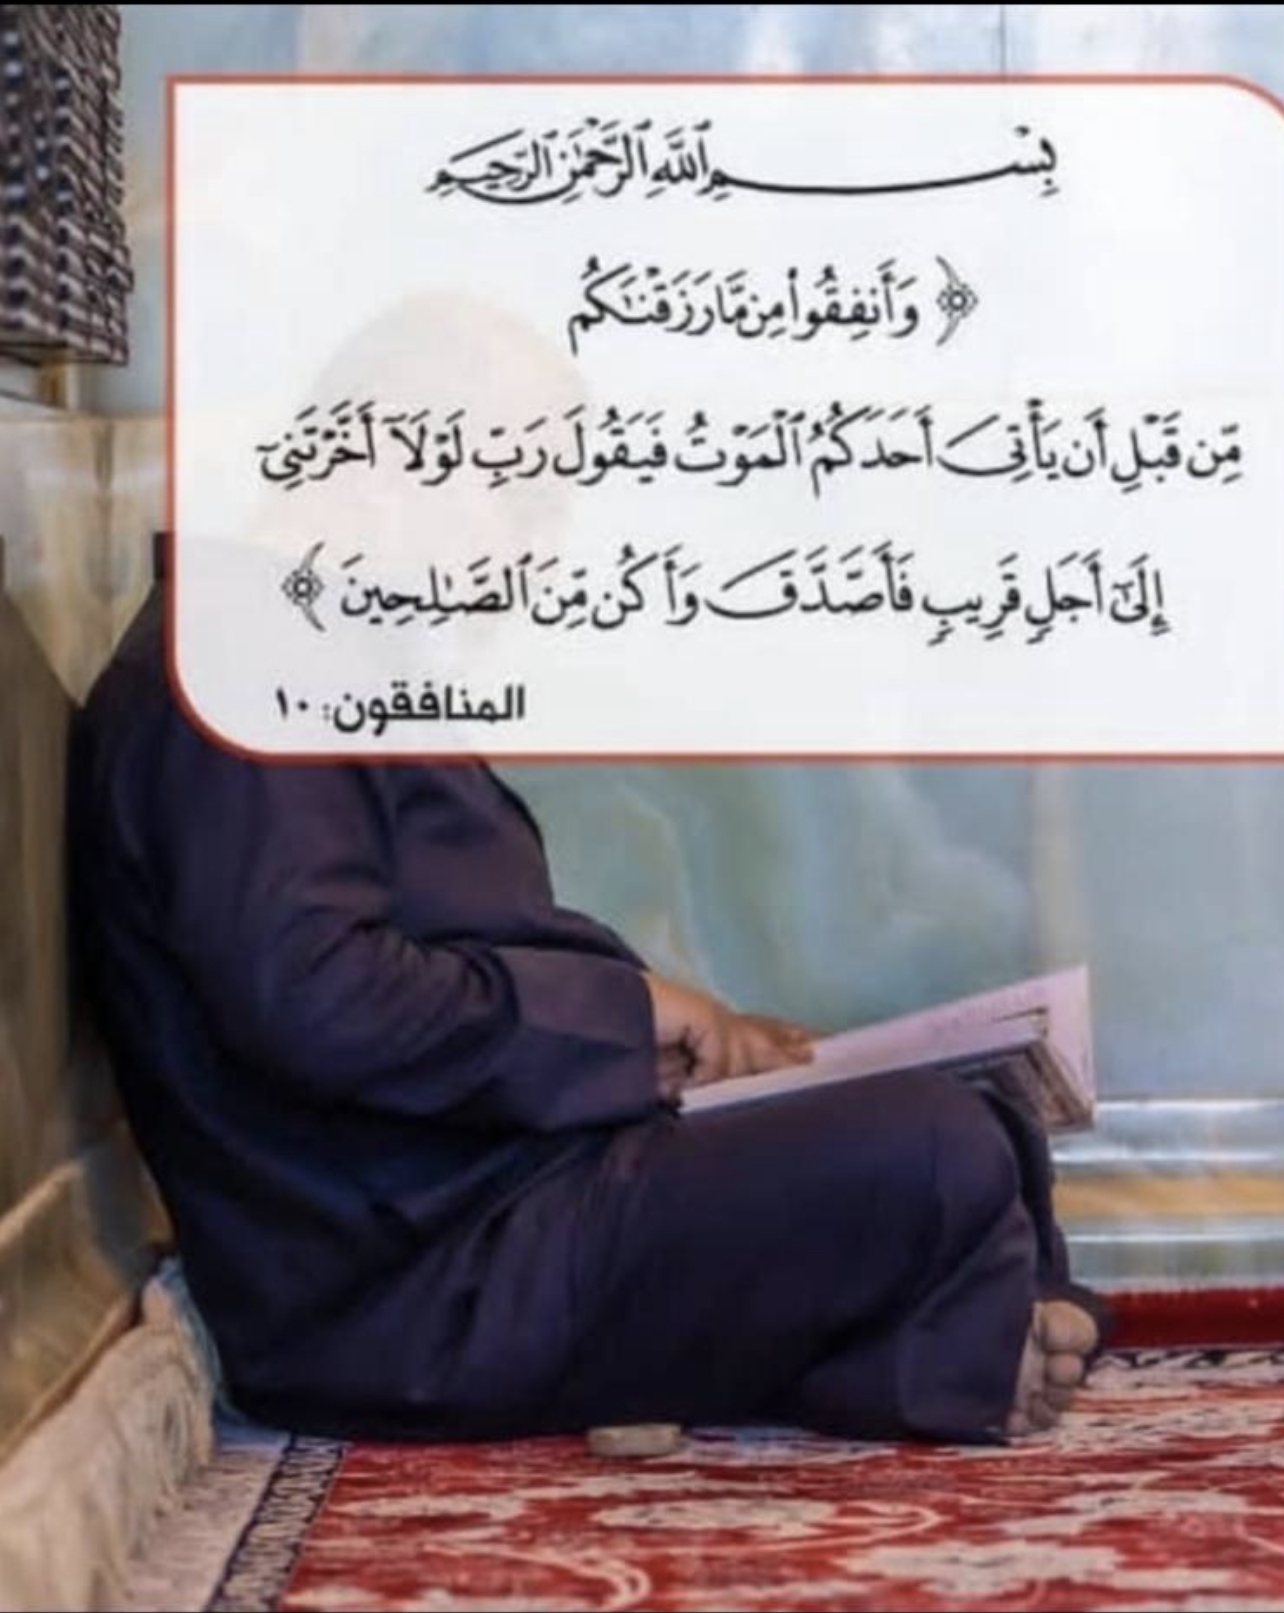 بِسْمِ ٱللَّهِ ٱلرَّحْمَٰنِ ٱلرَّحِيمِ
﴿ وَأَنفِقُوا۟ مِن مَّا رَزَقْنَٰكُم
مِّن قَبْلِ أَن يَأْتِىَ أَحَدَكُمُ ٱلْمَوْتُ فَيَقُولَ رَبِّ لَوْلَآ أَخَّرْتَنِىٓ
إِلَىٰٓ أَجَلٍ قَرِيبٍ فَأَصَّدَّقَ وَأَكُن مِّنَ ٱلصَّٰلِحِينَ ﴾
المنافقون: ١٠